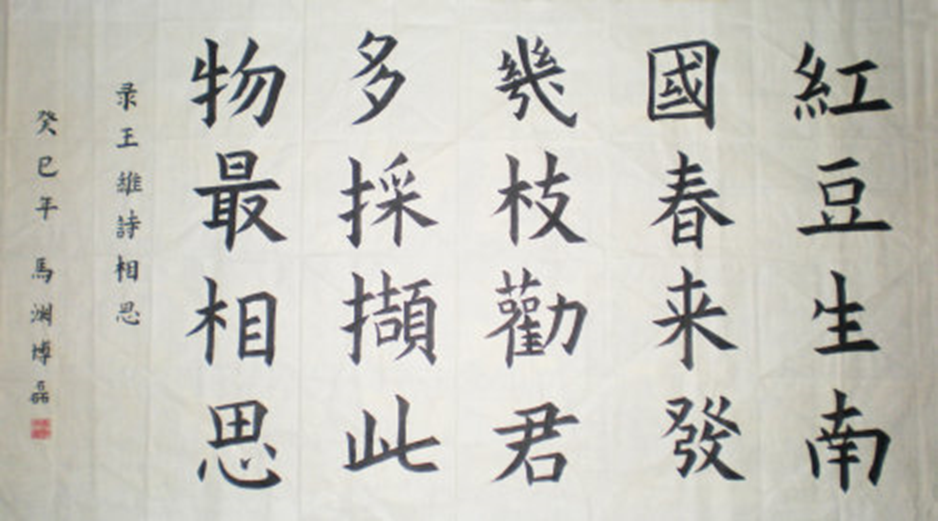 紅豆生南
國春来發
幾枝勸君
多採擷此
物最相思
录王維詩相思
癸巳年 馬渊博磊